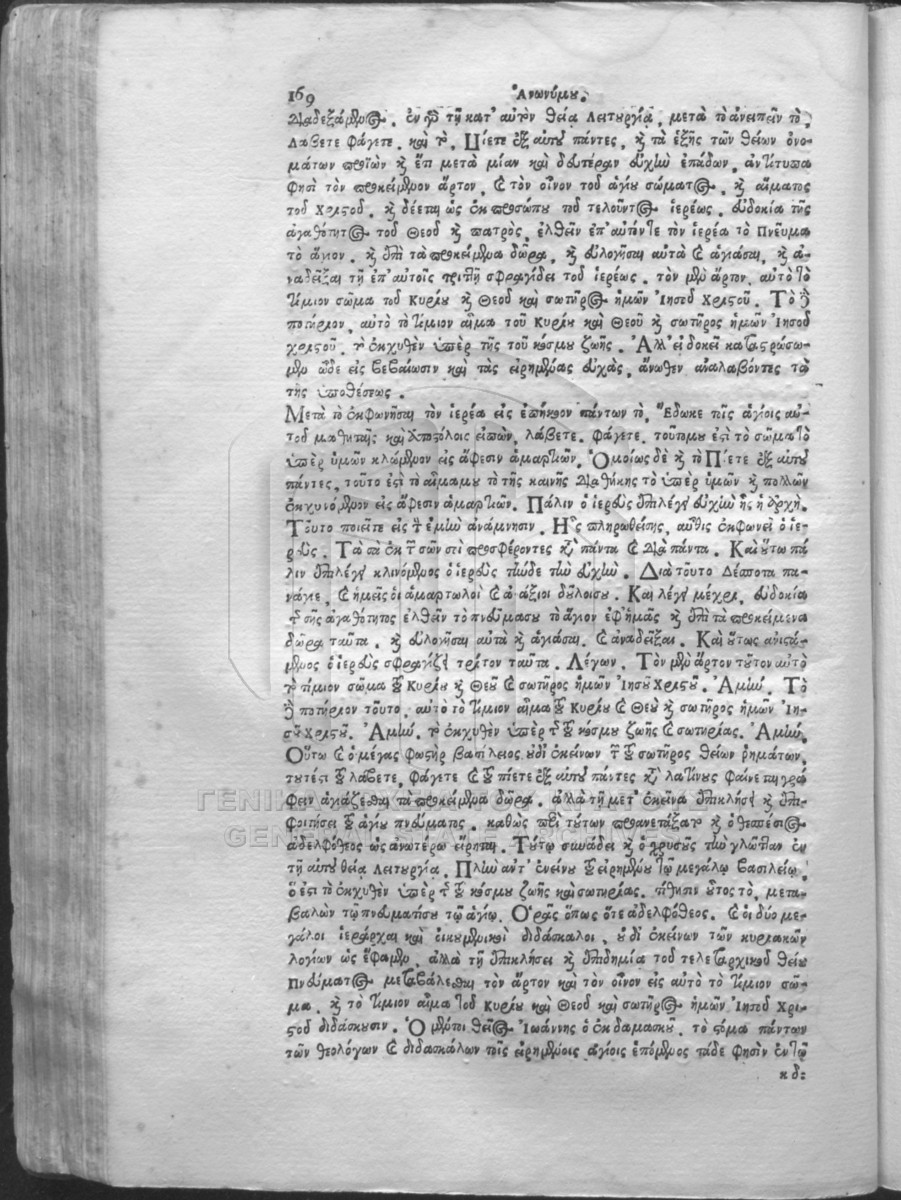 169 Ἀνωνύμου.
διαδεξάμενος, ἐν τῇ κατ' αὐτὸν θείᾳ λειτουργίᾳ, μετὰ τὸ ἀνειπεῖν τὸ,
Λάβετε φάγετε, καὶ τὸ, Πίετε ἐξ αὐτοῦ πάντες, καὶ τὰ ἑξῆς τῶν θείων ὀνο-
μάτων προϊὼν καὶ ἔτι μετὰ μίαν καὶ δευτέραν εὐχὴν ἐπάδων, ἀντίτυπα
φησὶ τὸν προκείμενον ἄρτον, καὶ τὸν οἶνον τοῦ ἁγίου σώματος, καὶ αἵματος
τοῦ Χριστοῦ, καὶ δέεται ὡς ἐκ προσώπου τοῦ τελοῦντος ἱερέως, εὐδοκίᾳ τῆς
ἀγαθότητος τοῦ Θεοῦ καὶ πατρὸς, ἐλθεῖν ἐπ' αὐτόν τε τὸν ἱερέα τὸ Πνεῦμα
τὸ ἅγιον, καὶ ἐπὶ τὰ προκείμενα δῶρα, καὶ εὐλογῆσαι αὐτὰ καὶ ἁγιάσαι, καὶ ἀ-
ναδεῖξαι τῇ ἐπ' αὐτοῖς τριττῇ σφραγίδι τοῦ ἱερέως, τὸν μὲν ἄρτον, αὐτὸ τὸ
τίμιον σῶμα τοῦ Κυρίου καὶ Θεοῦ καὶ σωτῆρος ἡμῶν Ἰησοῦ Χριστοῦ. Τὸ δὲ
ποτήριον, αὐτὸ τὸ τίμιον αἷμα τοῦ Κυρίου καὶ Θεοῦ καὶ σωτῆρος ἡμῶν Ἰησοῦ
χριστοῦ, τὸ ἐκχυθὲν ὑπὲρ τῆς τοῦ κόσμου ζωῆς. Ἀλλ' εἰ δοκεῖ καταστρώσω-
μεν ὧδε εἰς βεβαίωσιν καὶ τὰς εἰρημένας εὐχὰς, ἄνωθεν ἀναλαβόντες τὰ
τῆς ὑποθέσεως.
Μετὰ τὸ ἐκφωνῆσαι τὸν ἱερέα εἰς ἐπήκοον πάντων τὸ, Ἔδωκε τοῖς ἁγίοις αὐ-
τοῦ μαθηταῖς καὶ Ἀποστόλοις εἰπὼν, λάβετε, φάγετε, τοῦτό μου ἐστὶ τὸ σῶμα τὸ
ὑπὲρ ὑμῶν κλώμενον εἰς ἄφεσιν ἁμαρτιῶν. Ὁμοίως δὲ καὶ τὸ Πίετε ἐξ αὐτοῦ
πάντες, τοῦτο ἐστὶ τὸ αἷμα μου τὸ τῆς καινῆς διαθήκης τὸ ὑπὲρ ὑμῶν καὶ πολλῶν
ἐκχυνόμενον εἰς ἄφεσιν ἁμαρτιῶν. Πάλιν ὁ ἱερεὺς ἐπιλέγει εὐχὴν ἧς ἡ ἀρχὴ.
Τοῦτο ποιεῖτε εἰς τὴν ἐμὴν ἀνάμνησιν. Ἧς πληρωθείσης, αὖθις ἐκφωνεῖ ὁ ἱε-
ρεὺς. Τὰ σὰ ἐκ τῶν σῶν σοὶ προσφέροντες κατὰ πάντα καὶ διὰ πάντα. Καὶ οὕτω πά
λιν ἐπιλέγει κλινόμενος ὁ ἱερεὺς τήνδε τὴν εὐχὴν. Διὰ τοῦτο Δέσποτα πα-
νάγιε, καὶ ἡμεῖς οἱ ἁμαρτωλοὶ καὶ ἀνάξιοι δοῦλοί σου. Καὶ λέγει μέχρι, εὐδοκίᾳ
τῆς σῆς ἀγαθότητος ἐλθεῖν τὸ πνεῦμά σου τὸ ἅγιον ἐφ' ἡμᾶς καὶ ἐπὶ τὰ προκείμενα
δῶρα ταῦτα, καὶ εὐλογῆσαι αὐτὰ καὶ ἁγιάσαι, καὶ ἀναδεῖξαι. Καὶ οὕτως ἀνιστά-
μενος ὁ ἱερεὺς σφραγίζει τρίτον ταῦτα. Λέγων. Τὸν μὲν ἄρτον τοῦτον αὐτὸ
τὸ τίμιον σῶμα τοῦ Κυρίου καὶ Θεοῦ καὶ σωτῆρος ἡμῶν Ἰησοῦ Χριστοῦ. Ἀμήν. Τὸ
δὲ ποτήριον τοῦτο, αὐτὸ τὸ τίμιον αἷμα τοῦ Κυρίου καὶ Θεοῦ καὶ σωτῆρος ἡμῶν Ἰη-
σοῦ Χριστοῦ. Ἀμήν. τὸ ἐκχυθὲν ὑπὲρ τῆς τοῦ κόσμου ζωῆς καὶ σωτηρίας. Ἀμήν.
Οὕτω καὶ ὁ μέγας φωστὴρ βασίλειος οὐ δι' ἐκείνων τῶν τοῦ σωτῆρος θείων ῥημάτων,
τουτέστι τοῦ λάβετε, φάγετε καὶ τοῦ πίετε ἐξ αὐτοῦ πάντες κατὰ λατίνους φαίνεται γρά
φειν ἁγιάζεσθαι τὰ προκείμενα δῶρα, ἀλλὰ τῇ μετ' ἐκεῖνα ἐπικλήσει καὶ ἐπι-
φοιτήσει τοῦ ἁγίου πνεύματος, καθὼς περὶ τούτων προανετάξατο καὶ ὁ θεσπέσιος
ἀδελφόθεος ὡς ἀνωτέρω εἴρηται. Τούτῳ συνᾴδει καὶ ὁ χρυσοῦς τὴν γλῶτταν ἐν
τῇ αὐτοῦ θείᾳ λειτουργίᾳ. Πλὴν ἀντ' ἐκείνου τοῦ εἰρημένου τῷ μεγάλῳ βασιλείῳ,
ὅ ἐστι τὸ ἐκχυθὲν ὑπὲρ τῆς τοῦ κόσμου ζωῆς καὶ σωτηρίας, τίθησιν οὗτος τὸ, μετα-
βαλὼν τῷ πνεύματί σου τῷ ἁγίῳ. Ὁρᾷς ὅπως ὅ τε ἀδελφόθεος, καὶ οἱ δύο με-
γάλοι ἱεράρχαι καὶ οἰκουμενικοὶ διδάσκαλοι, οὐ δι' ἐκείνων τῶν κυριακῶν
λογίων ὡς ἔφαμεν, ἀλλὰ τῇ ἐπικλήσει καὶ ἐπιδημίᾳ τοῦ τελεταρχικοῦ θείου
πνεύματος μεταβάλεσθαι τὸν ἄρτον καὶ τὸν οἶνον εἰς αὐτὸ τὸ τίμιον σῶ-
μα, καὶ τὸ τίμιον αἷμα τοῦ Κυρίου καὶ Θεοῦ καὶ σωτῆρος ἡμῶν Ἰησοῦ Χρι-
στοῦ διδάσκουσιν. Ὁ μέντοι θεῖος Ἰωάννης ὁ ἐκ δαμασκοῦ, τὸ στόμα πάντων
τῶν θεολόγων καὶ διδασκάλων τοῖς εἰρημένοις ἁγίοις ἑπόμενος τάδε φησὶν ἐν τῷ
κδ:
ΓΕΝΙΚΑ ΑΡΧΕΙΑ ΤΟΥ ΚΡΑΤΟΥΣ
GENERAL STATE ARCHIVES